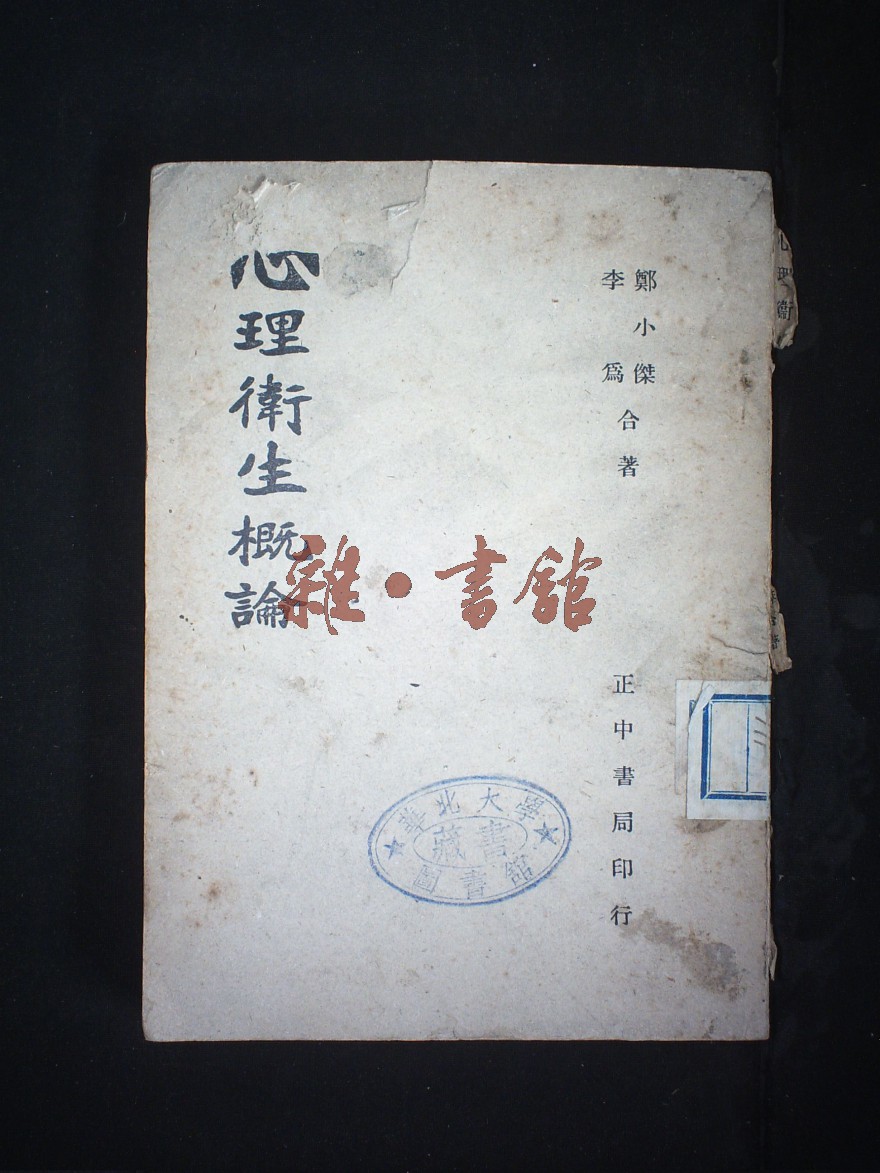 鄭小傑
李爲
合著
正中書局印行
心理衛生概論
雜·書館
華北大學
藏書
圖書館
心理衛